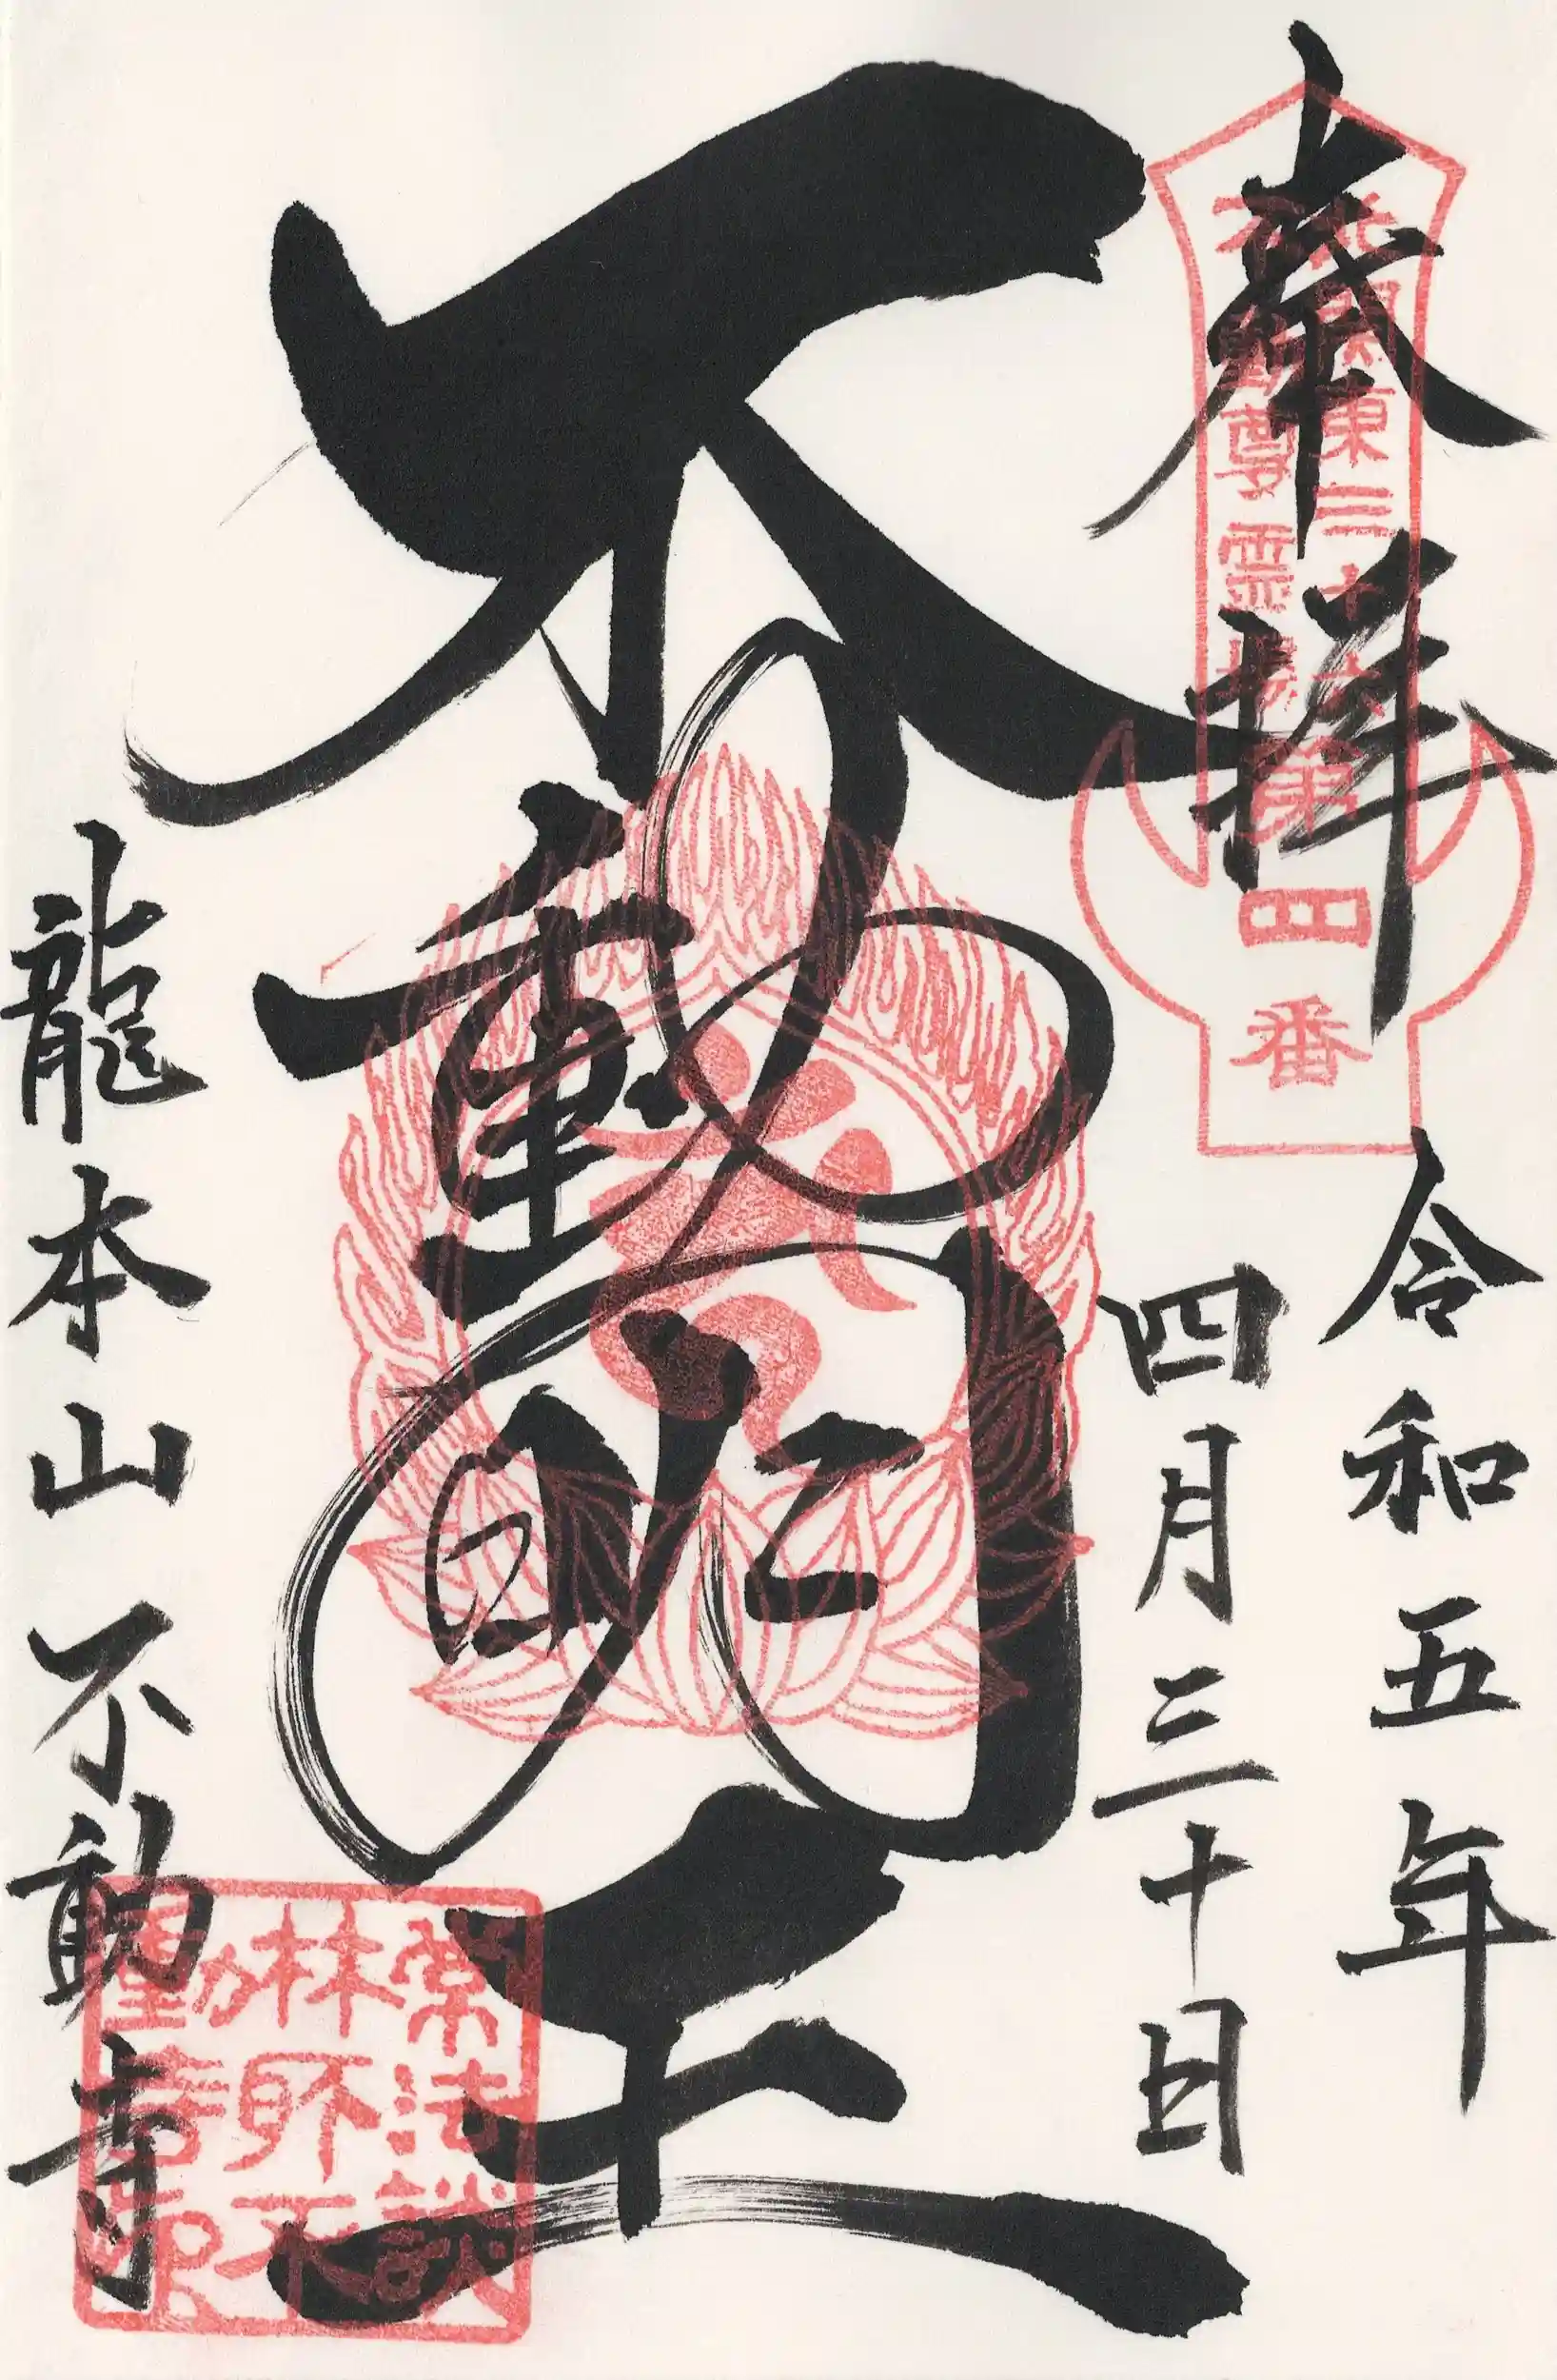 奉拝
北関東三十六
不動尊霊場
第四番
令和五年
四月三十日
不動明王
龍本山 不動寺
常法談
林所不
動寺印